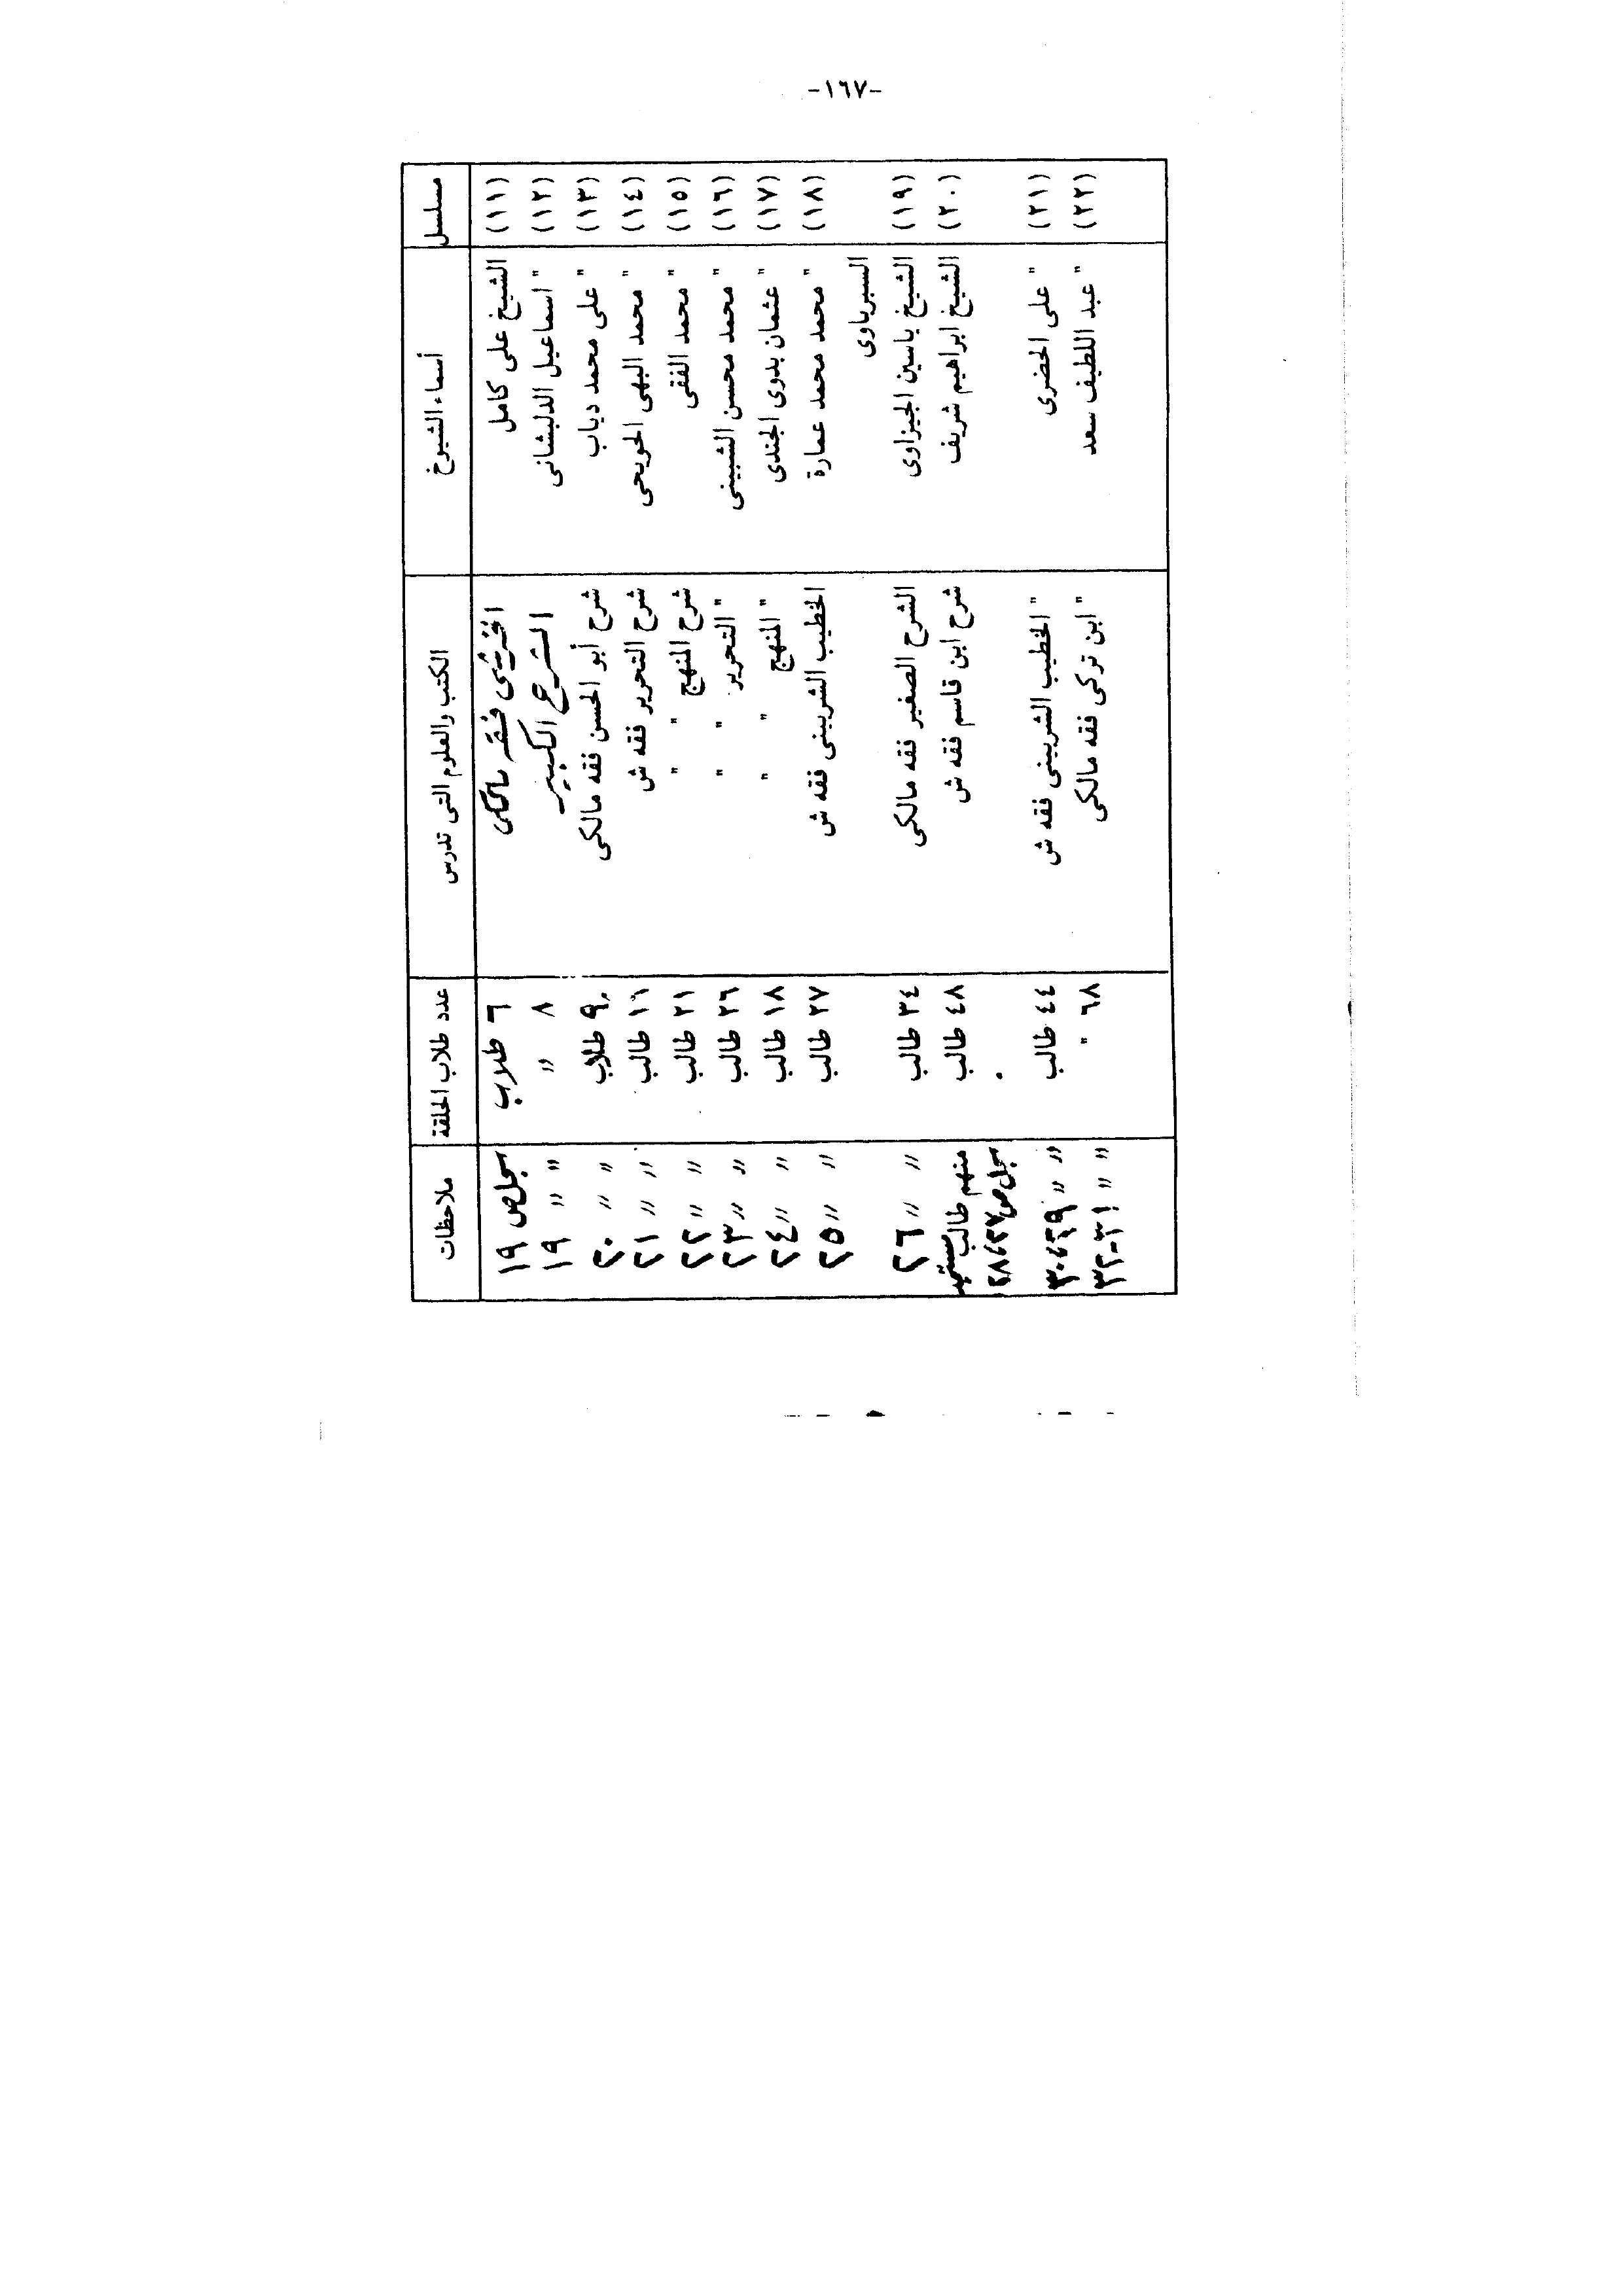 -١٦٧-
مسلسل أسماء الشيوخ الكتب والعلوم التى تدرس عدد طلاب الحلقة ملاحظات
(١١) الشيخ على كامل الخرشى فقه مالكى ٦ طلاب سجل ص ١٩
(١٢) " اسماعيل الدلبشانى الشرح الكبير ٨ " " " ١٩
(١٣) " على محمد دياب شرح أبو الحسن فقه مالكى ٩ طلاب " " ٢٠
(١٤) " محمد البهى الحويحى شرح التحرير فقه ش ١٦ طالب " " ٢١
(١٥) " محمد الفقى شرح المنهج " " ٢١ طالب " " ٢٢
(١٦) " محمد محسن الشبينى " التحرير " " ٢٦ طالب " " ٢٣
(١٧) " عثمان بدوى الجندى " المنهج " " ١٨ طالب " " ٢٤
(١٨) " محمد محمد عمارة الخطيب الشربينى فقه ش ٢٧ طالب " " ٢٥
السبرباوى
(١٩) الشيخ ياسين الجيزاوى الشرح الصغير فقه مالكى ٣٤ طالب " " ٢٦
(٢٠) الشيخ ابراهيم شريف شرح ابن قاسم فقه ش ٤٨ طالب منهم طالب مستجد
سجل ص ٢٧، ٢٨
(٢١) " على الخضرى " الخطيب الشربينى فقه ش ٤٤ طالب " " ٢٩، ٣٠
(٢٢) " عبد اللطيف سعد " ابن تركى فقه مالكى ٦٨ " " " ٣١-٣٢